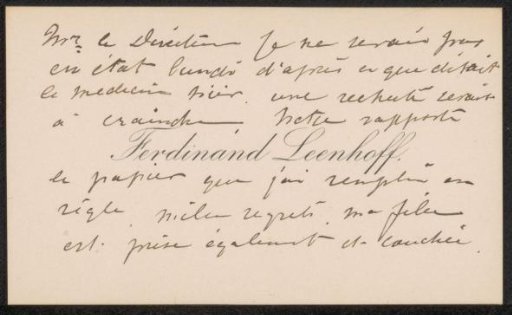 Mr. le Directeur je ne serais pas
en état lundi d'après ce que disait
le medecin hier. une rechute serait
à craindre rapporte
Ferdinand Leenhoff.
le papier que j'ai rempli en
règle mille regrets. ma
est prise également et couchée.